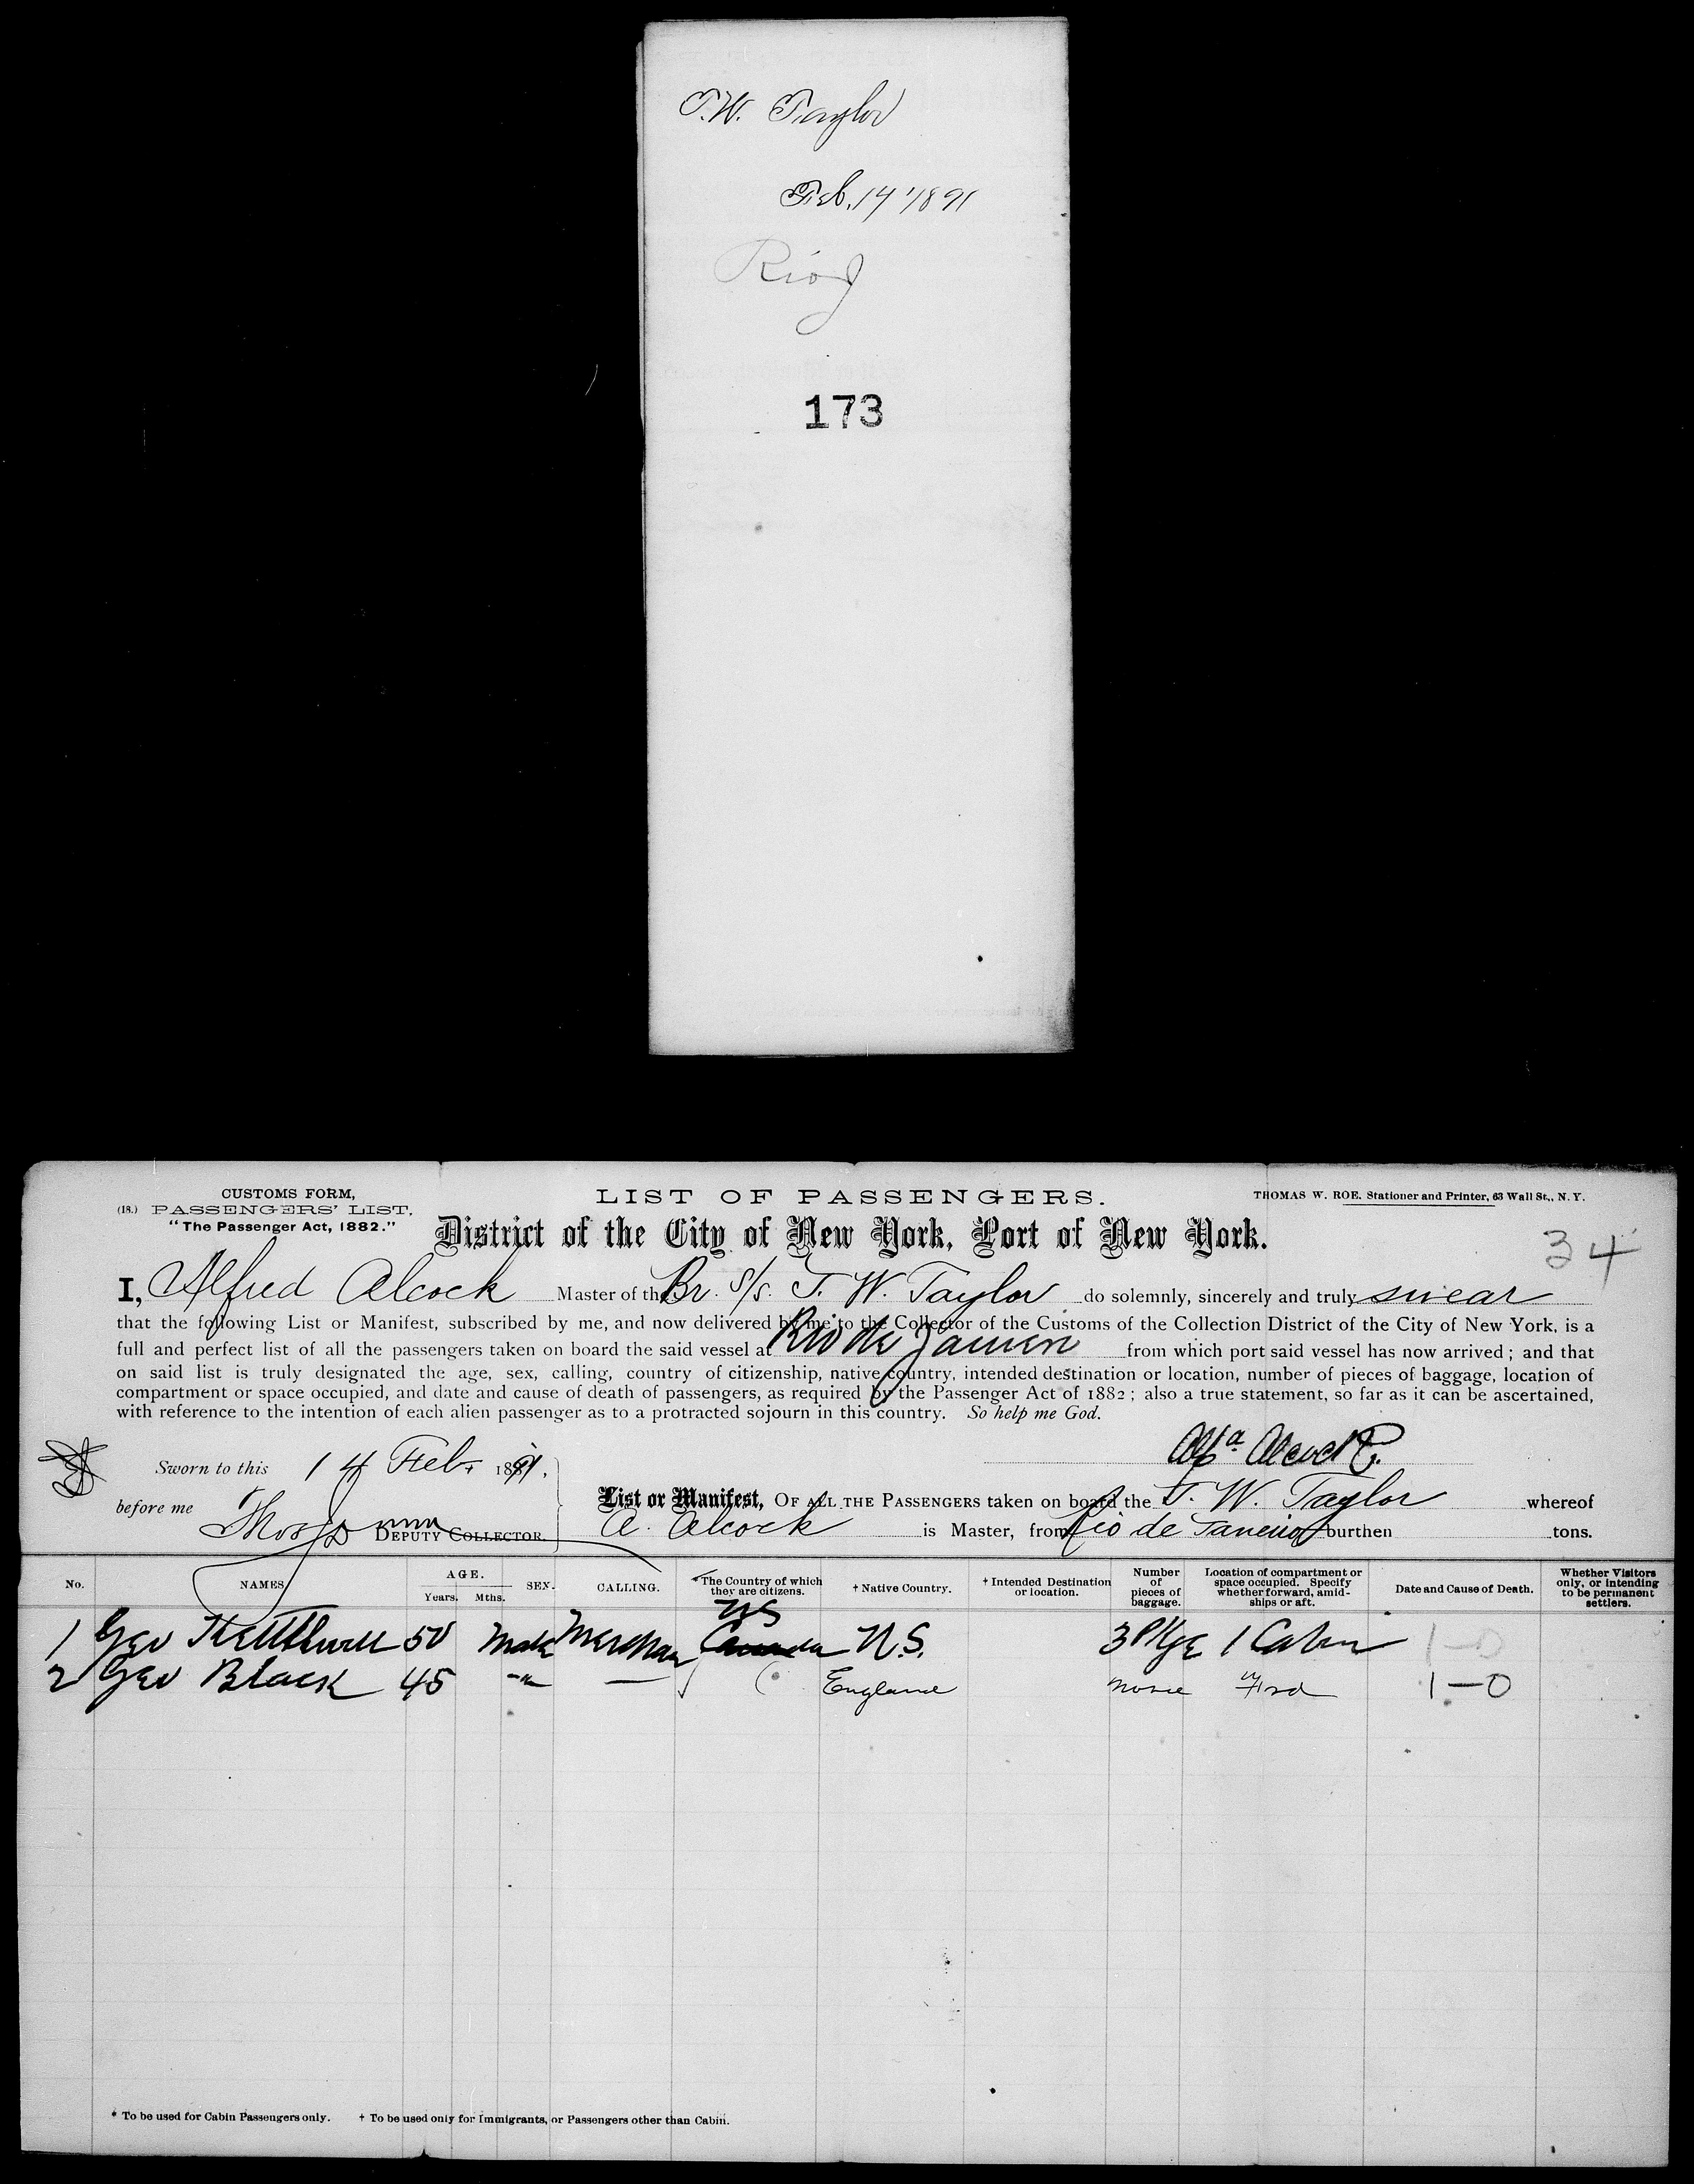 T. W. Taylor
Feb. 14 1891
Rio J
173
CUSTOMS FORM,
(18.) PASSENGERS' LIST.
"The Passenger Act, 1882."
LIST OF PASSENGERS.
THOMAS W. ROE, Stationer and Printer, 63 Wall St., N. Y.
District of the City of New York, Port of New York.
34
I, Alfred Alcock Master of the Br. S/S. T. W. Taylor do solemnly, sincerely and truly swear
that the following List or Manifest, subscribed by me, and now delivered by me to the Collector of the Customs of the Collection District of the City of New York, is a
full and perfect list of all the passengers taken on board the said vessel at Rio de Janeiro from which port said vessel has now arrived; and that
on said list is truly designated the age, sex, calling, country of citizenship, native country, intended destination or location, number of pieces of baggage, location of
compartment or space occupied, and date and cause of death of passengers, as required by the Passenger Act of 1882; also a true statement, so far as it can be ascertained,
with reference to the intention of each alien passenger as to a protracted sojourn in this country. So help me God.
Alcock
Sworn to this 14 Feb. 1891.
before me
DEPUTY COLLECTOR.
List or Manifest, OF ALL THE PASSENGERS taken on board the T. W. Taylor whereof
A. Alcock is Master, from Rio de Janeiro burthen tons.
No. NAMES AGE. Years. Mths. SEX. CALLING. *The Country of which they are citizens. † Native Country. † Intended Destination or location. Number of pieces of baggage. Location of compartment or space occupied. Specify whether forward, amidships or aft. Date and Cause of Death. Whether Visitors only, or intending to be permanent settlers.
US
1 Geo Kettlewell 50 Male Merchan Canada N.S. 3 Pkge 1 Cabin 1-0
2 Geo Black 45 " — England none Fwd 1-0
* To be used for Cabin Passengers only. † To be used only for Immigrants, or Passengers other than Cabin.